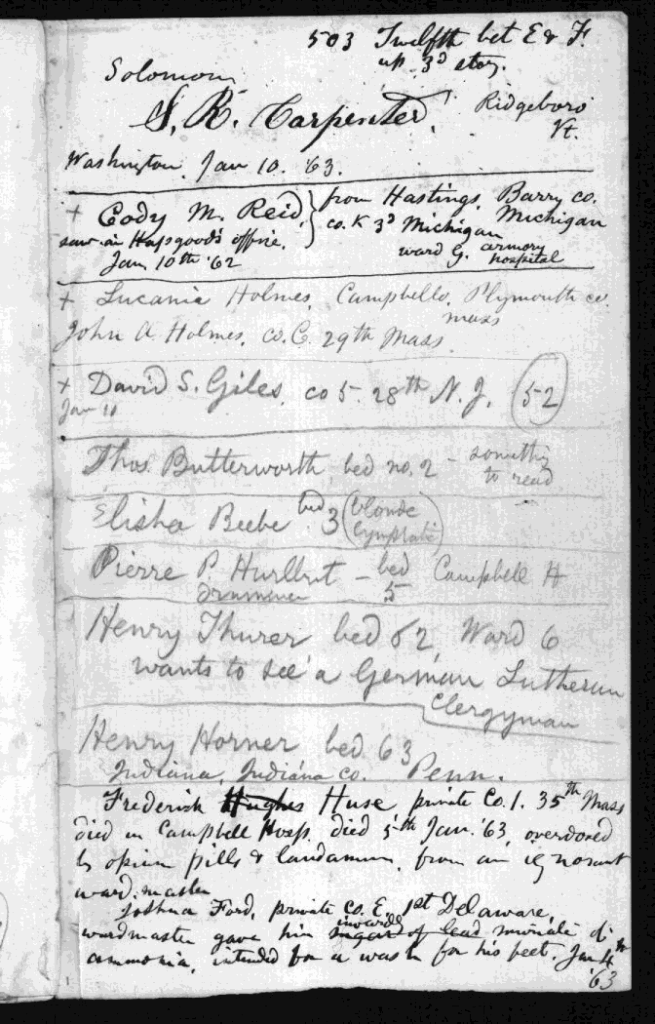 503 Twelfth bet E & F.
up 3d story.
Solomon
S. R. Carpenter, Ridgeboro
Vt.
Washington. Jan 10. '63.
+ Cody M. Reid, } from Hastings, Barry co.
saw in Hapgood's office. co. K 3d Michigan Michigan
Jan 10th '62 ward G. armory
hospital
+ Lucania Holmes, Campbello, Plymouth co.
mass
John A Holmes. co. C. 29th Mass.
+ David S. Giles, co 5. 28th N. J. 52
Jan 11
Thos. Butterworth bed no. 2 - somethg
to read
Elisha Beebe bed 3 (blonde
lymphatic)
Pierre P. Hurlbut - bed Campbell H
drummer 5
Henry Thurer bed 62 Ward 6
wants to see a German Lutheran
clergyman
Henry Horner bed 63
Indiana, Indiana co. Penn.
Frederick Hughes Huse private Co. I. 35th Mass
died in Campbell Hosp. died 5th Jan. '63, overdosed
by opium pills & laudanum, from an ignorant
ward-master
Joshua Ford, private Co. E. 1st Delaware,
wardmaster gave him inwardly sugar of lead muriate of
ammonia, intended for a wash for his feet. Jan 4th
'63